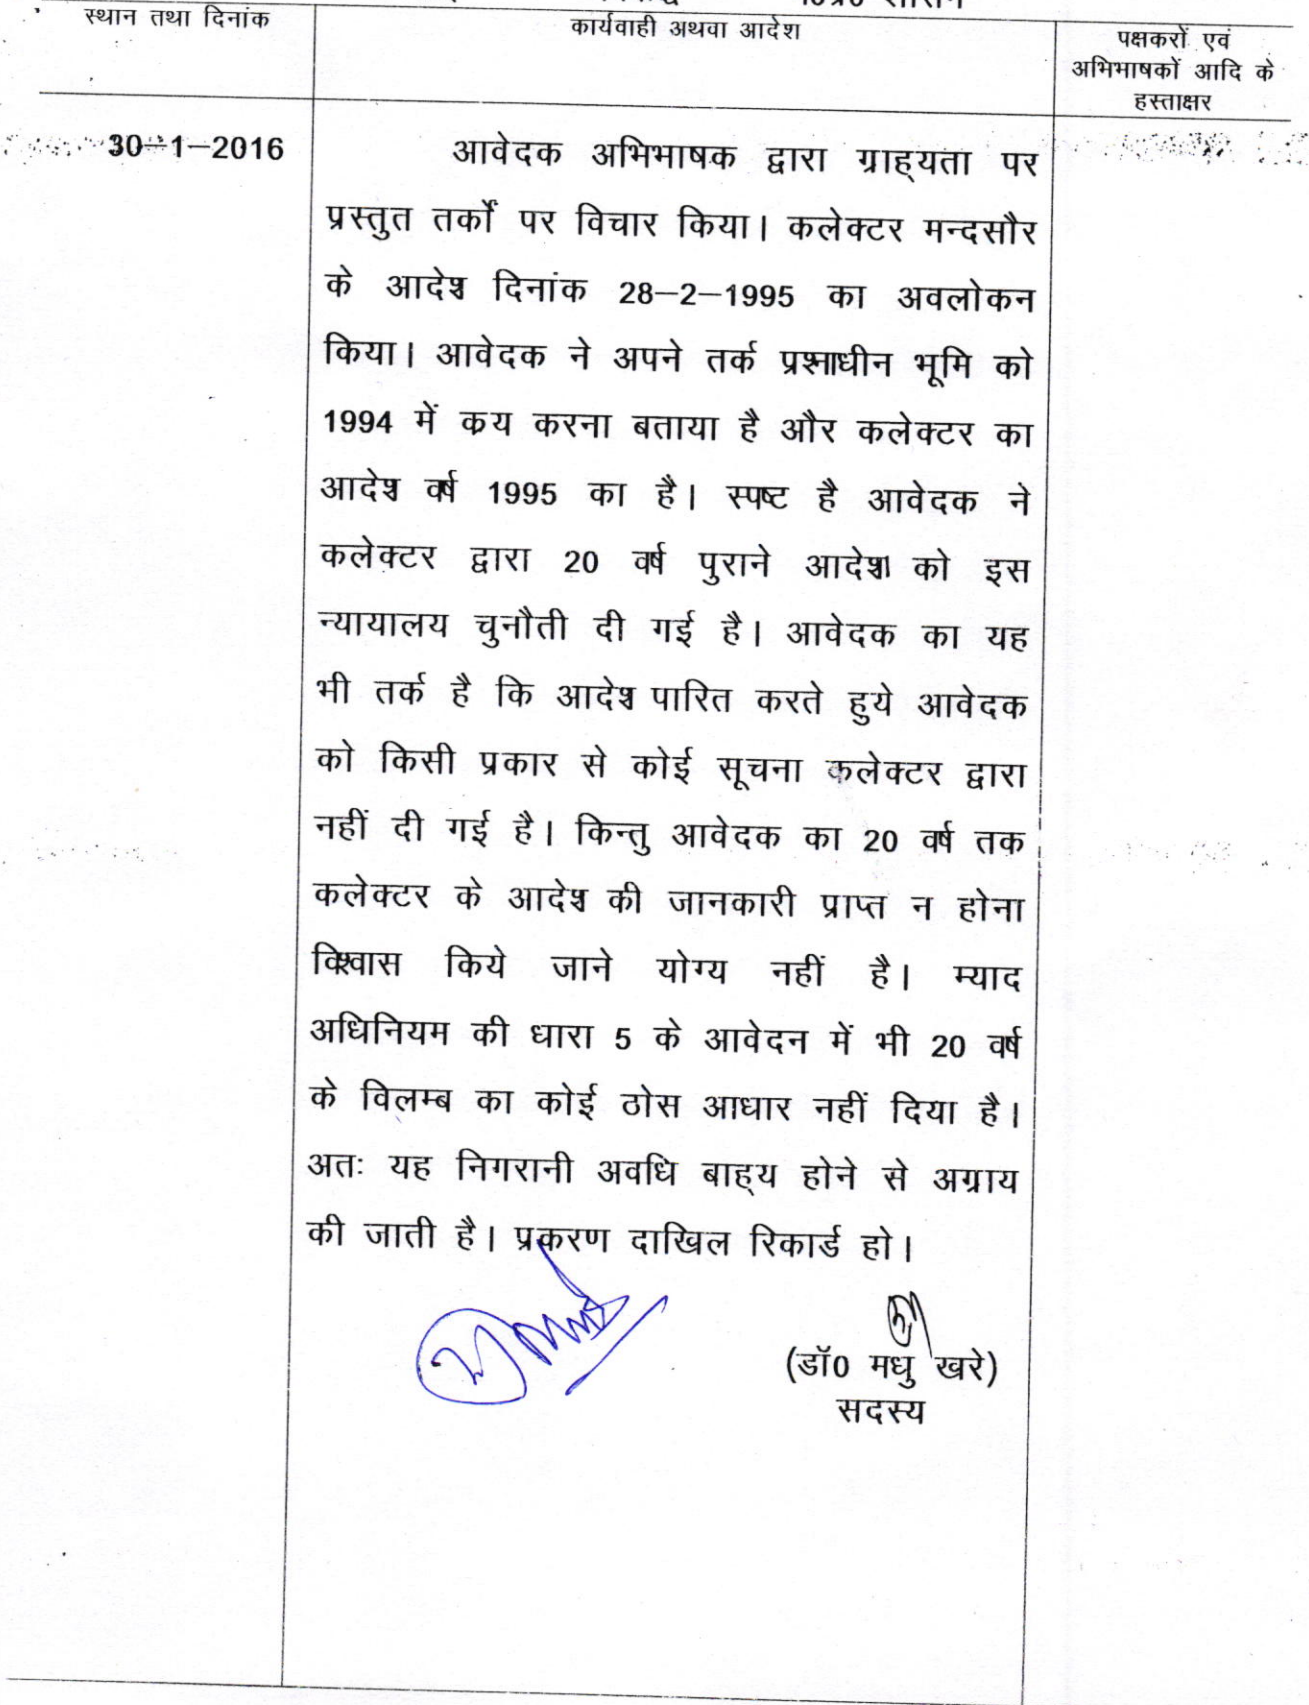 स्थान तथा दिनांक
कार्यवाही अथवा आदेश
पक्षकरों एवं
अभिभाषकों आदि के
हस्ताक्षर
30-1-2016
आवेदक अभिभाषक द्वारा ग्राह्यता पर
प्रस्तुत तर्कों पर विचार किया। कलेक्टर मन्दसौर
के आदेश दिनांक 28-2-1995 का अवलोकन
किया। आवेदक ने अपने तर्क प्रश्नाधीन भूमि को
1994 में कय करना बताया है और कलेक्टर का
आदेश वर्ष 1995 का है। स्पष्ट है आवेदक ने
कलेक्टर द्वारा 20 वर्ष पुराने आदेश को इस
न्यायालय चुनौती दी गई है। आवेदक का यह
भी तर्क है कि आदेश पारित करते हुये आवेदक
को किसी प्रकार से कोई सूचना कलेक्टर द्वारा
नहीं दी गई है। किन्तु आवेदक का 20 वर्ष तक
कलेक्टर के आदेश की जानकारी प्राप्त न होना
विश्वास किये जाने योग्य नहीं है। म्याद
अधिनियम की धारा 5 के आवेदन में भी 20 वर्ष
के विलम्ब का कोई ठोस आधार नहीं दिया है।
अतः यह निगरानी अवधि बाह्य होने से अग्राय
की जाती है। प्रकरण दाखिल रिकार्ड हो।
(डॉ0 मधु खरे)
सदस्य